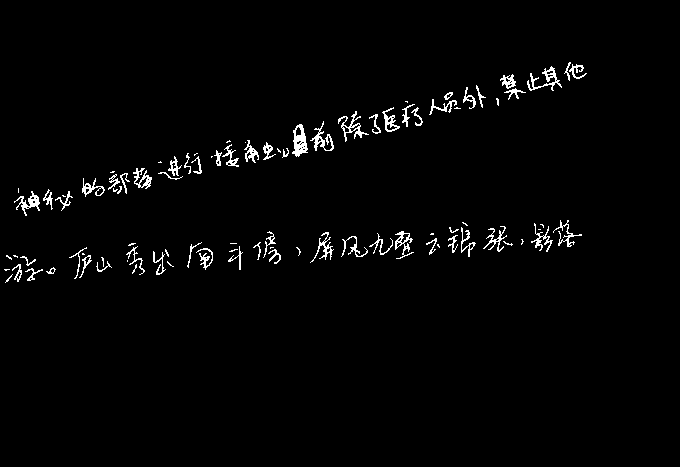 神秘的部落进行接触。目前除了医疗人员外，禁止其他
游。庐山秀出南斗傍，屏风九叠云锦张，影落